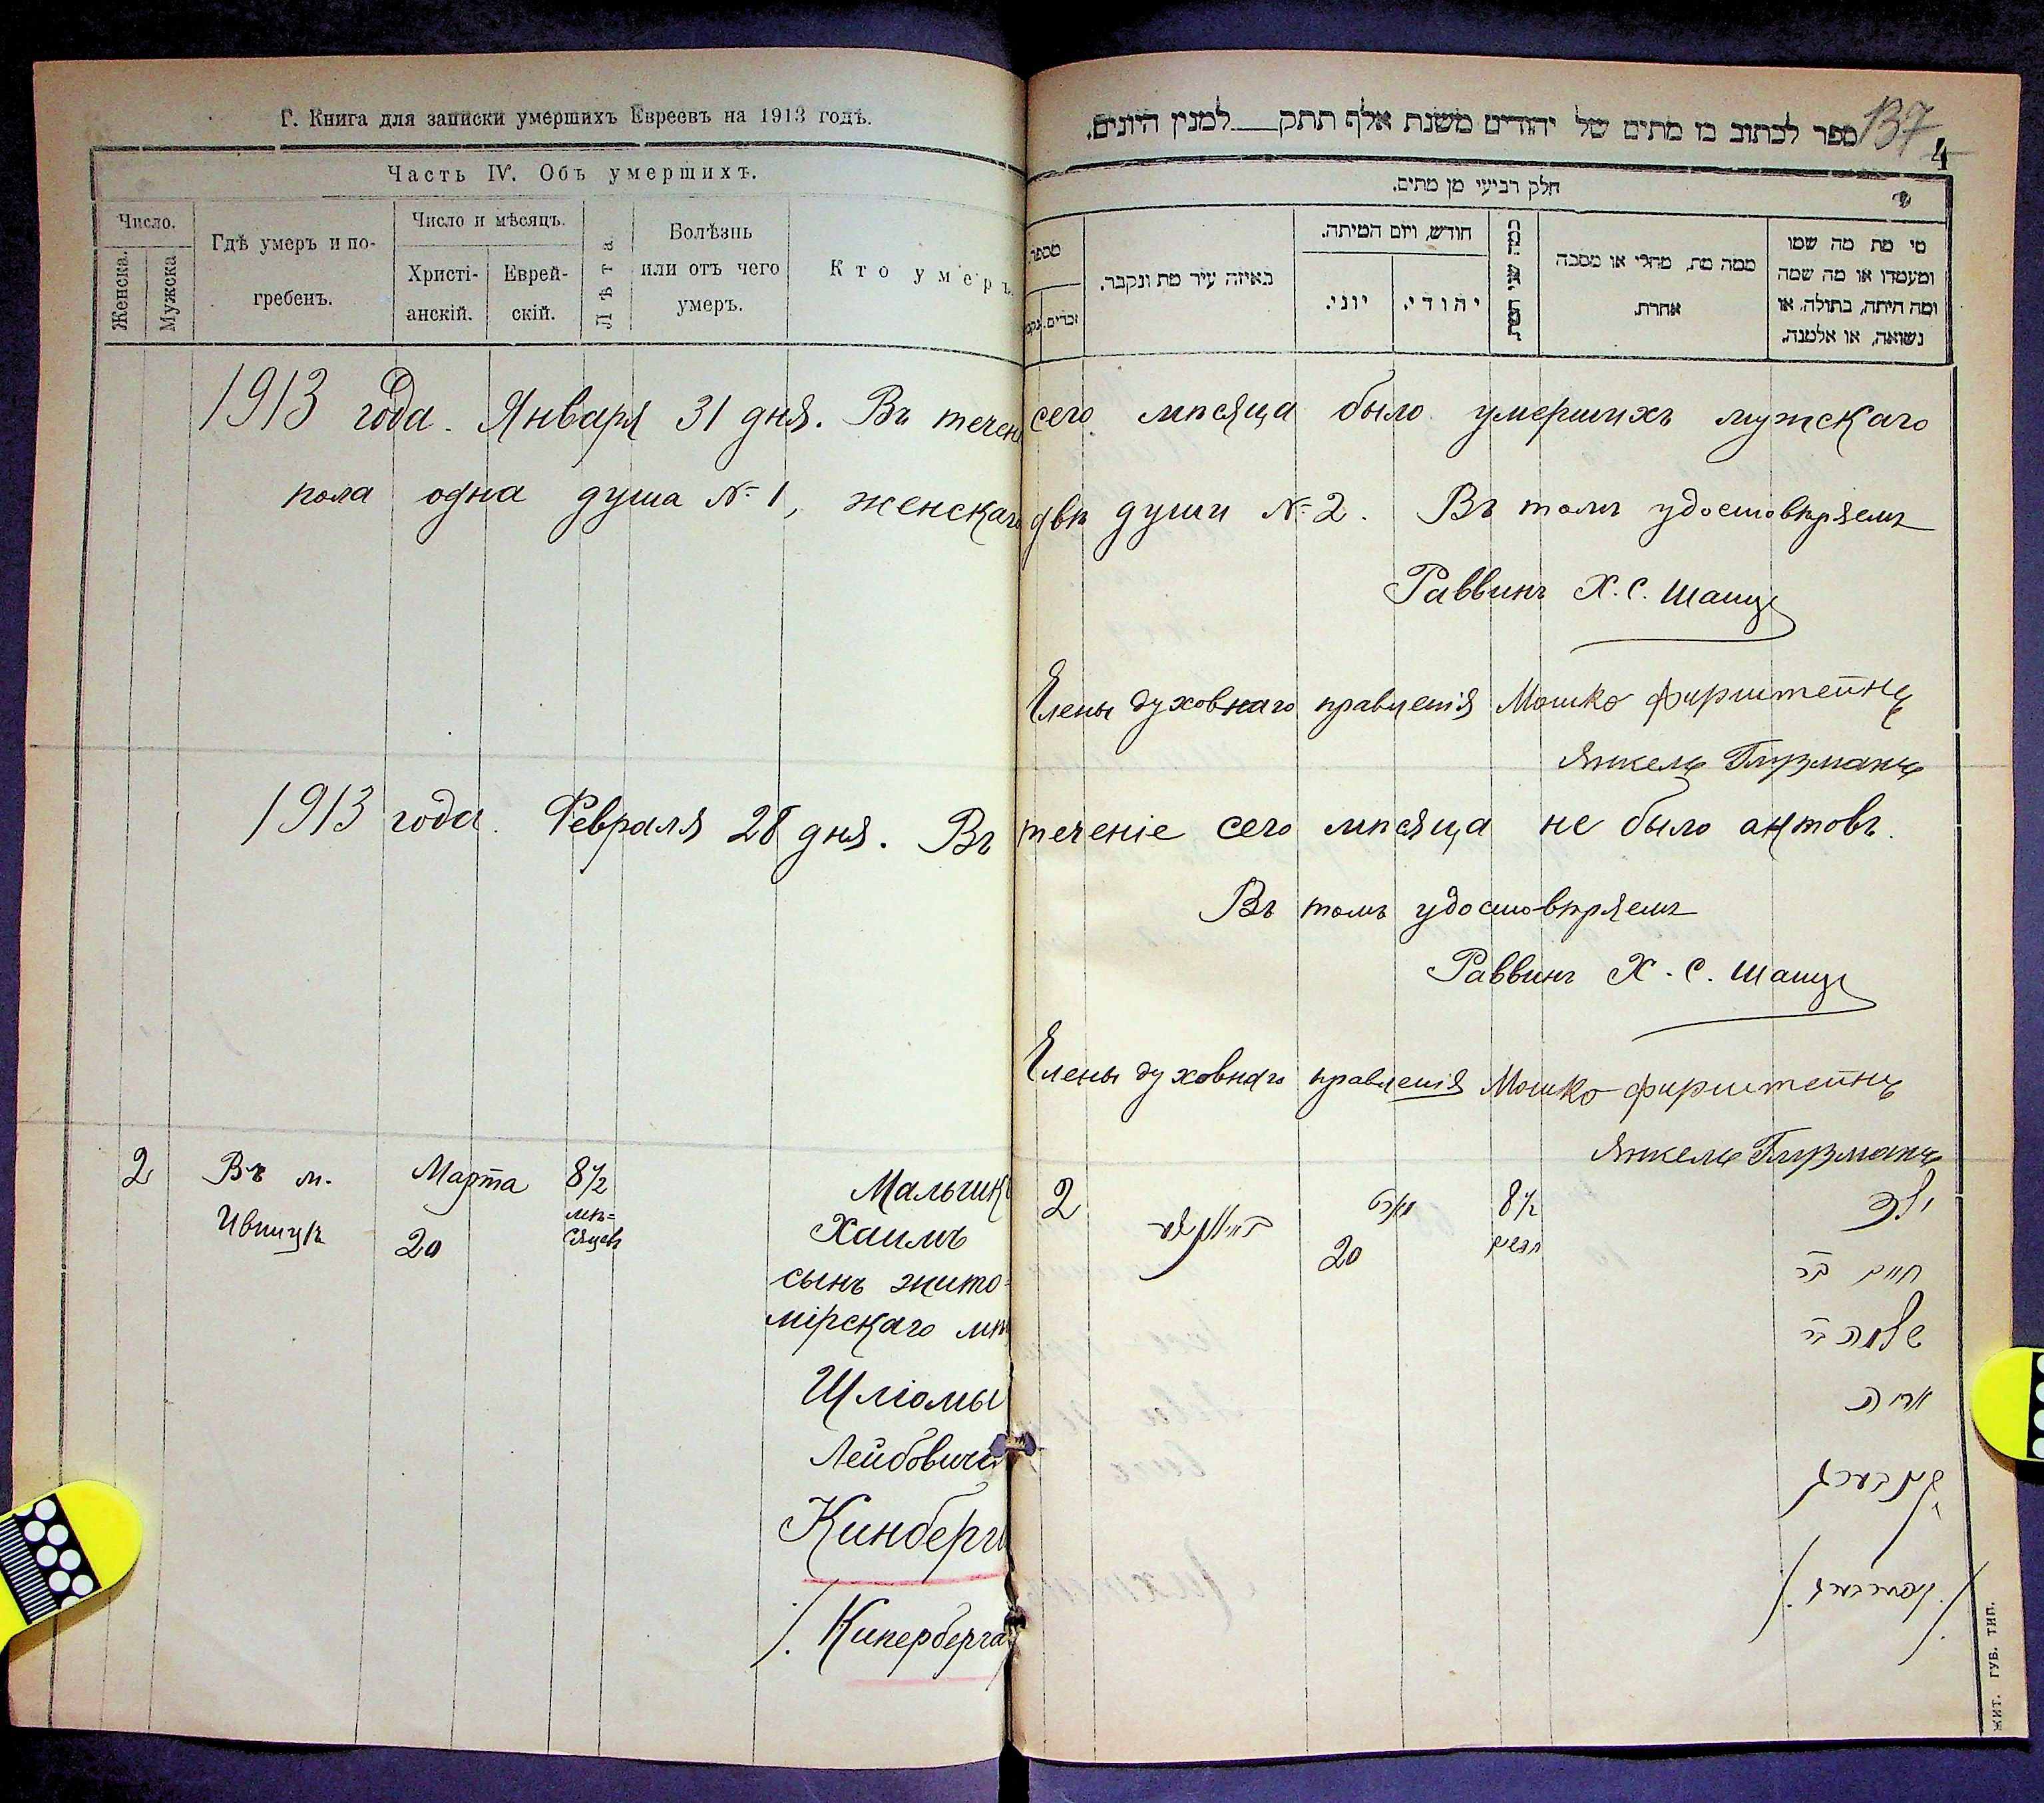 Г. Книга для записки умершихъ Евреевъ на 1913 годъ.
Часть IV. Объ умершихъ.
Число.
Женска.
Мужска
Гдѣ умеръ и по-
гребенъ.
Число и мѣсяцъ.
Христі-
анскій.
Еврей-
скій.
Лѣта.
Болѣзнь
или отъ чего
умеръ.
Кто умеръ.
137
4
ספר לכתוב בו מתים של יהודים משנת אלף תתק__למנין היונים.
חלק רביעי מן מתים.
מספר.
זכרים.
באיזה עיר מת ונקבר.
חודש, ויום המיתה.
יוני.
יהודי.
כמה שני המת
ממה מת, מחלי או מסבה
אחרת.
מי מת מה שמו
ומעמדו או מה שמה
ומה היתה, בתולה, או
נשואה, או אלמנה.
1913 года. Января 31 дня. Въ течен сего мѣсяца было умершихъ мужскаго
пола одна душа № 1, женскаго двѣ души № 2. Въ томъ удостовѣряемъ
Раввинъ Х. С. Шапиц
Члены духовнаго правленія Мошко Фирштейнъ
Янкель Глузманъ
1913 года. Февраля 28 дня. Въ теченіе сего мѣсяца не было актовъ.
Въ томъ удостовѣряемъ
Раввинъ Х. С. Шапиц
Члены духовнаго правленія Мошко Фирштейнъ
Янкель Глузманъ
2 Въ м. Марта 8½ Мальчикъ
Ивницѣ 20 мѣ=
сяцевъ Хаимъ
сынъ жито=
мірскаго мѣщ
Шліомы
Лейбовича
Кинберга
/. Кипербергa
2 20 8½ ילד
חיים בר
שלמה בר
ארי׳
קינבערג
ЖИТ. ГУБ. ТИП.